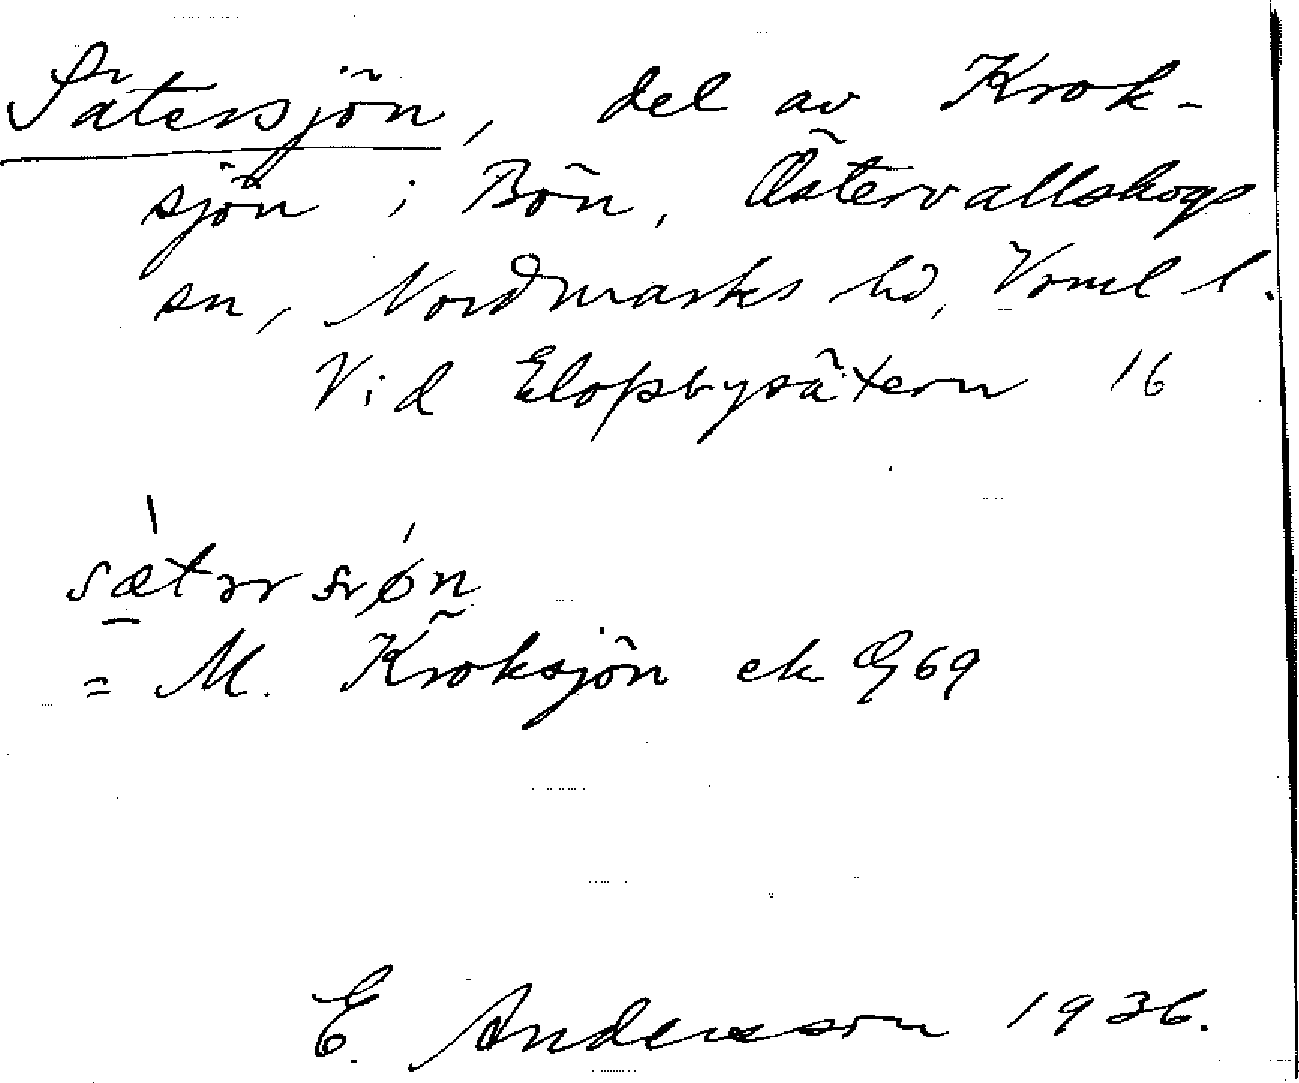 Sätersjön, del av Krok-
sjön i Bön, Östervallskogs
sn, Nordmarks hd, Vrml l.
Vid Elopsbysätern 16
sætər
= M. Kroksjön ek 69
E. Andersson 1936.